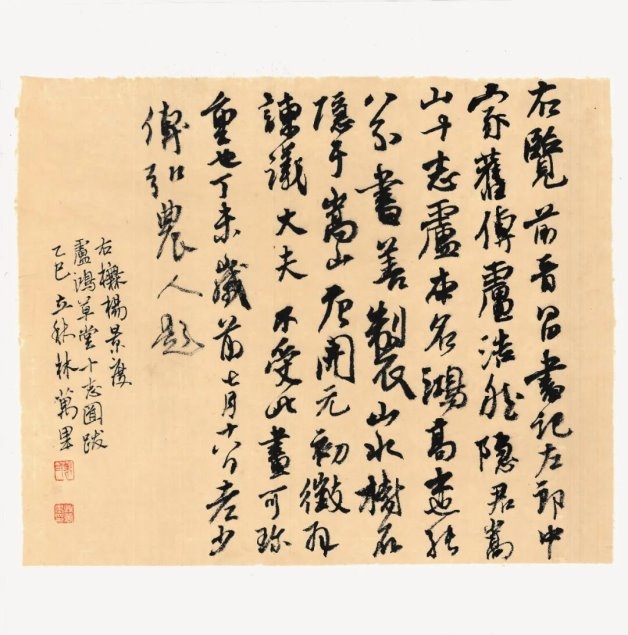 右覽前晉昌書記左郎中
家舊傳盧浩然隱君嵩
山十志盧本名鴻高士能
八分書善製山水樹石
隱于嵩山唐開元初徵拜
諫議大夫不受此畫可珍
重也丁未歲前七月十八日老少
傅弘農人題
右橅楊景度
盧鴻草堂十志圖跋
乙巳立秋林萬里